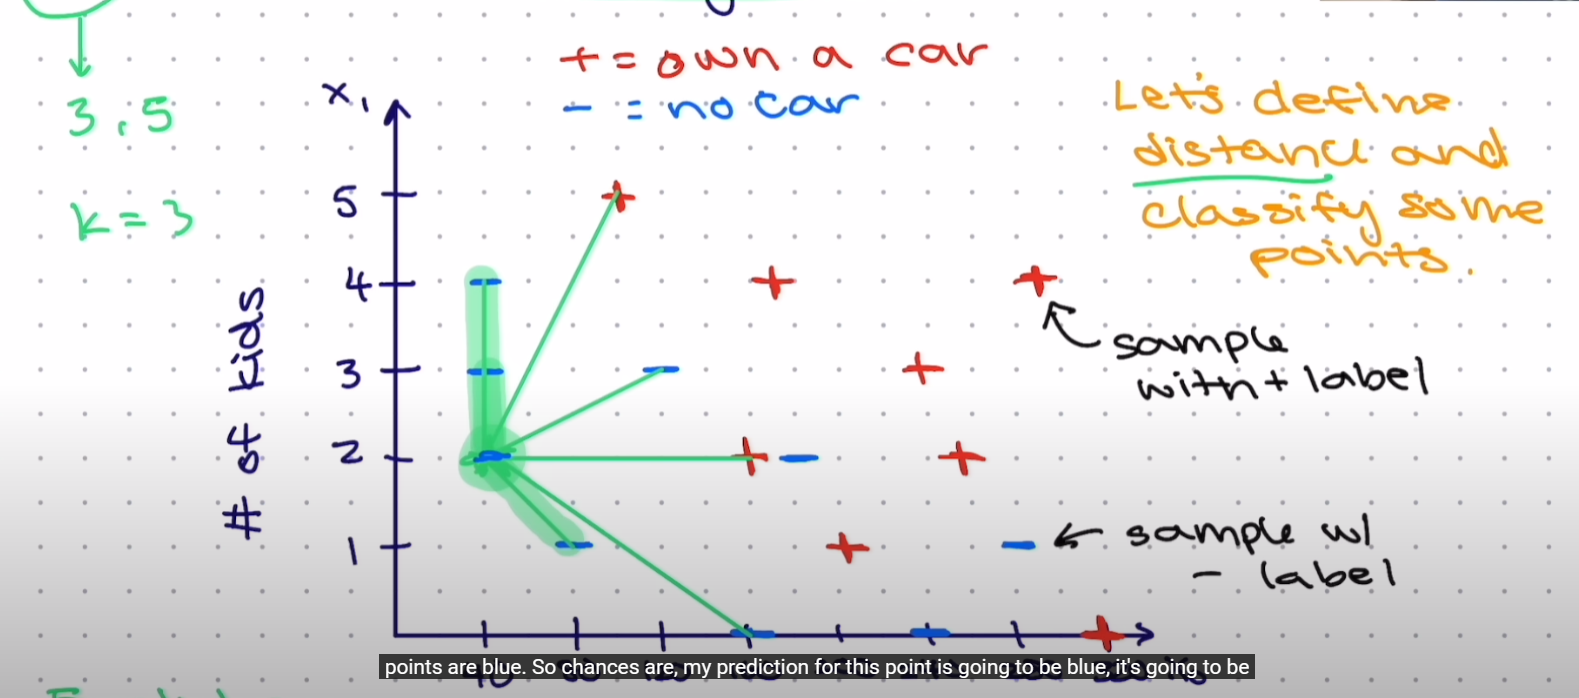 + = own a car
- = no car
3, 5
k = 3
x₁
Let's define
distance and
classify some
points.
5
4
3
2
1
# of kids
sample
with + label
sample w/
- label
points are blue. So chances are, my prediction for this point is going to be blue, it's going to be
40